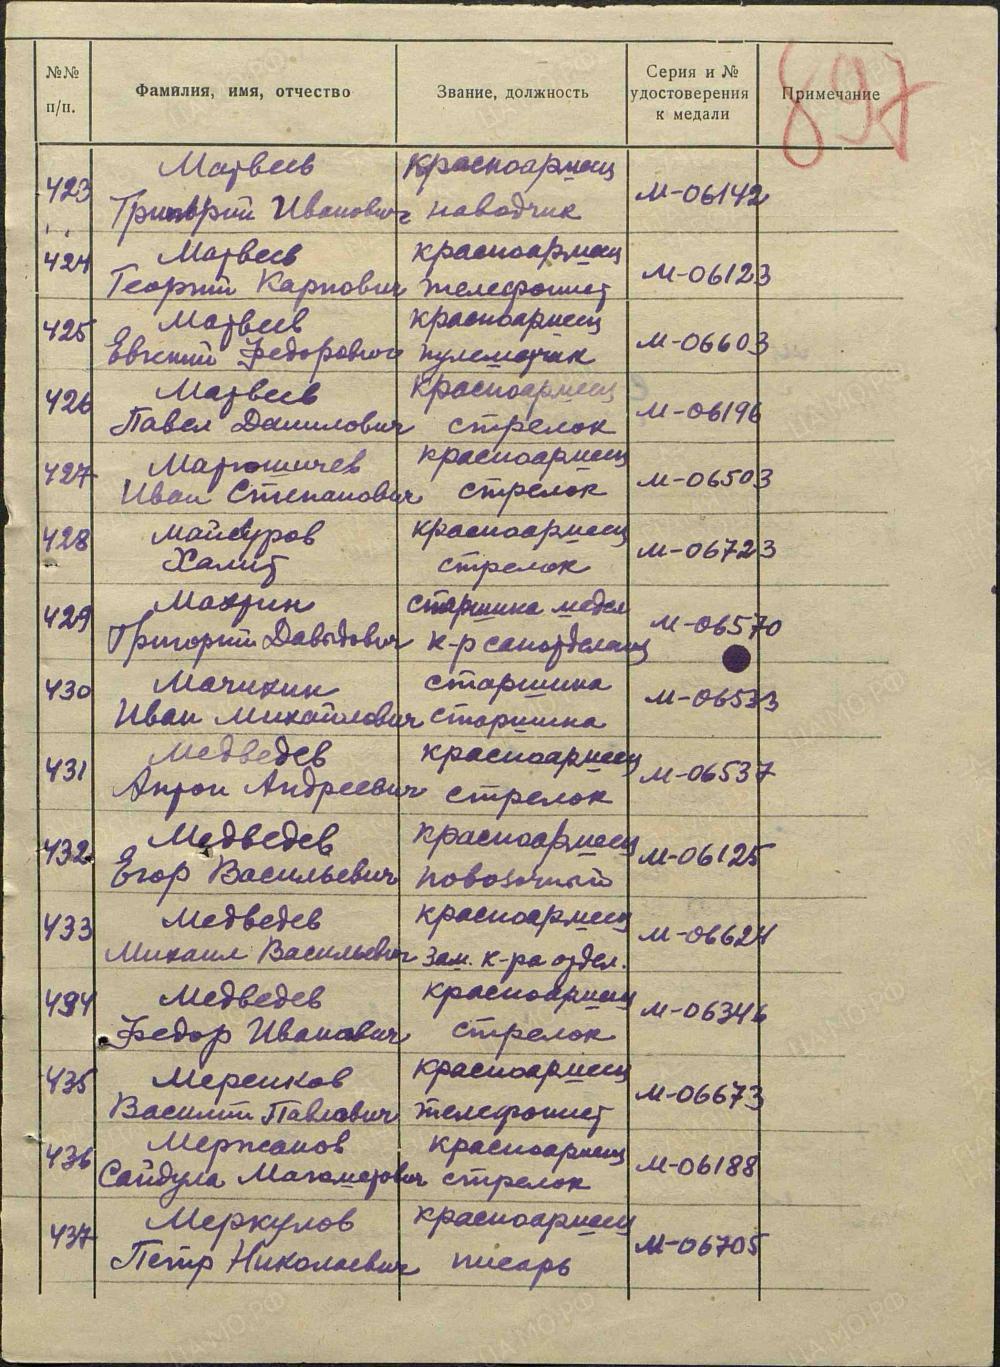 897
№№ п/п.
Фамилия, имя, отчество
Звание, должность
Серия и № удостоверения к медали
Примечание
423 Матвеев красноармеец М-06142
Григорий Иванович наводчик
424 Матвеев красноармеец М-06123
Георгий Карпович телефонист
425 Матвеев красноармеец М-06603
Евгений Федорович пулеметчик
426 Матвеев красноармеец М-06196
Павел Данилович стрелок
427 Матюшичев красноармеец М-06503
Иван Степанович стрелок
428 красноармеец М-06723
Халит стрелок
429 Махрин старшина мед.сл М-06570
Григорий Давыдович к-р санотделения
430 Мачихин старшина М-06533
Иван Михайлович старшина
431 Медведев красноармеец М-06537
Антон Андреевич стрелок
432 Медведев красноармеец М-06125
Егор Васильевич повозочный
433 Медведев красноармеец М-06624
Михаил Васильевич зам. к-ра отдел.
434 Медведев красноармеец М-06346
Федор Иванович стрелок
435 Меренков красноармеец М-06673
Василий Павлович телефонист
436 Мержанов красноармеец М-06188
Сайдула Магометович стрелок
437 Меркулов красноармеец М-06705
Петр Николаевич писарь